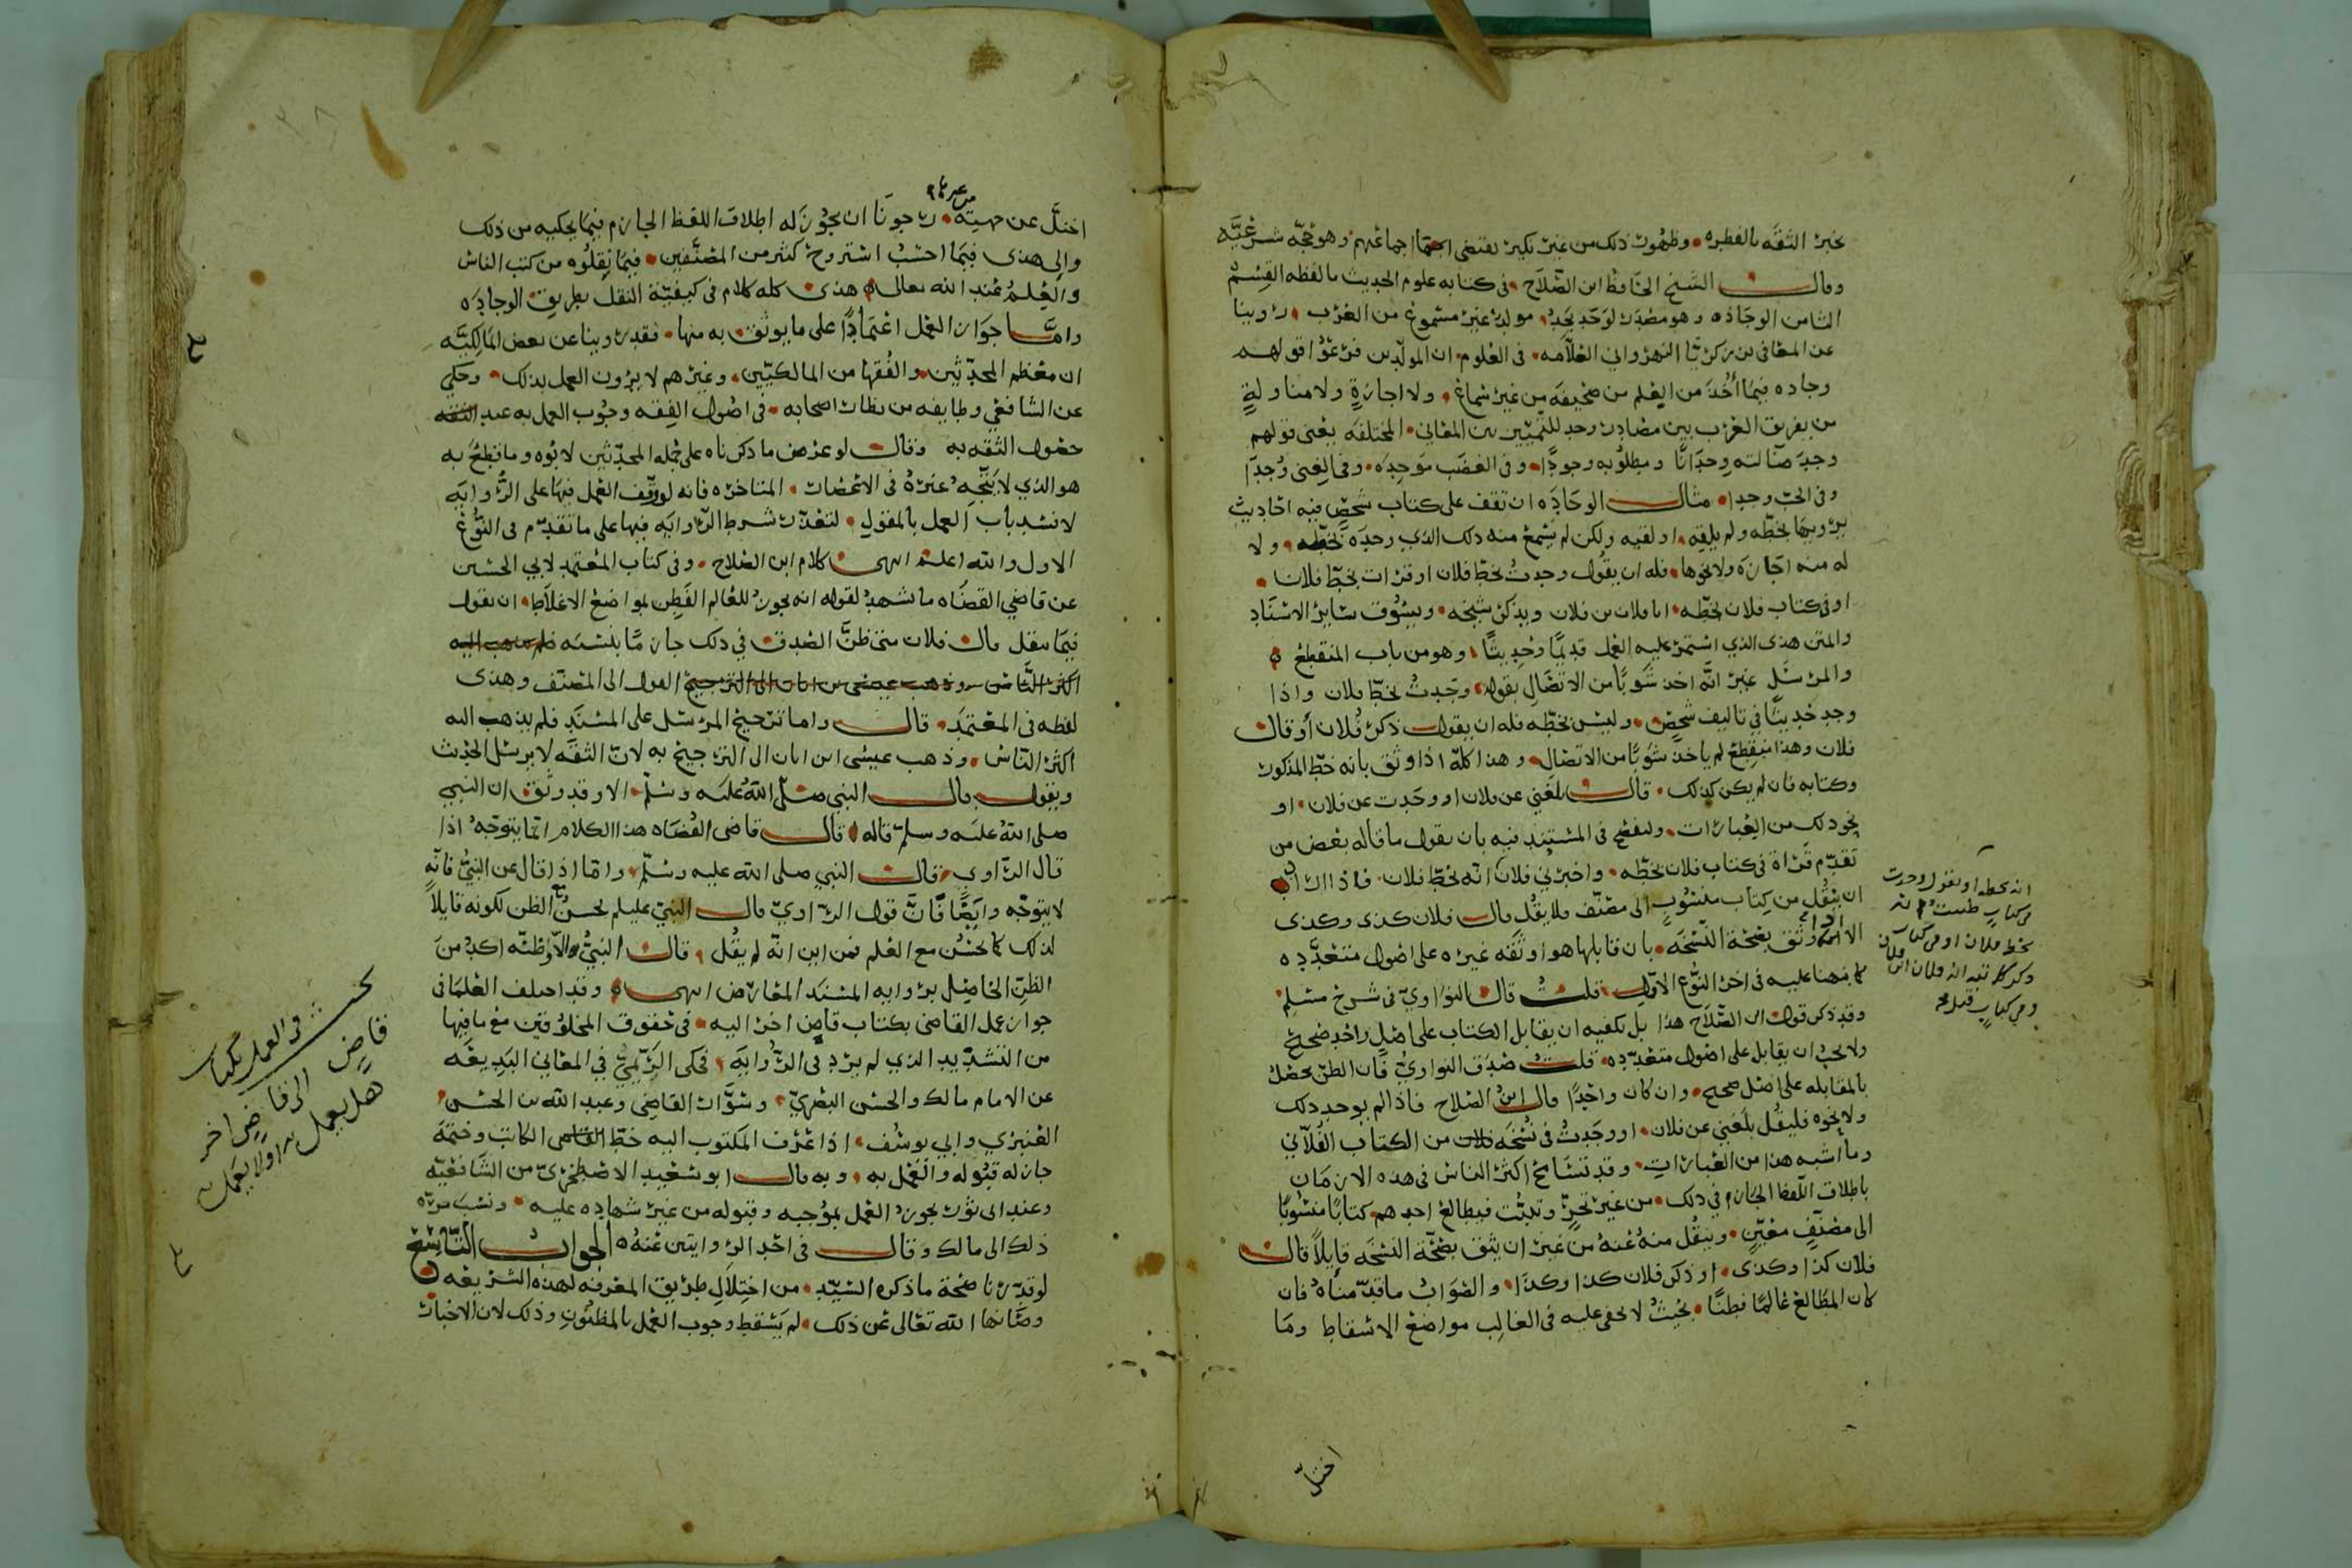 بخبر الثقه بالفطره وظهور ذلك من غير نكير يقتضي اجماعهم وهو حجه شرعيه
وقال الشيخ الحافظ ابن الصلاح في كتابه علوم الحديث ما لفظه القسم
الثامن الوجاده وهو مصدر لوجد يجد مولد غير مسموع من العرب روينا
عن المعافى بن زكريا النهرواني العلامه في العلوم ان المولدين فرعوا قولهم
وجاده فيما أخذ من العلم من صحيفه من غير سماع ولا اجازة ولا مناولة
من تفريق العرب بين مصادر وجد للتمييز بين المعاني المختلفه يعني قولهم
وجد ضالته وجدانا ومطلوبه وجودا وفي الغضب موجده وفي الغنى وُجدا
وفي الحب وجدا مثال الوجاده ان تقف على كتاب شخص فيه احاديث
يرويها بخطه ولم يلقه او لقيه ولكن لم يسمع منه ذلك الذي وجده بخطه ولا
له منه اجازه ولا نحوها فله ان يقول وجدت بخط فلان او قرات بخط فلان
او في كتاب فلان بخطه انا فلان بن فلان ويذكر شيخه ويسوق سائر الاسناد
والمتن هذى الذي استمر عليه العمل قديمًا وحديثًا وهو من باب المنقطع
والمرسل غير انه اخذ شوبًا من الاتصال بقوله وجدت بخط فلان واذا
وجد حديثًا في تاليف شخص وليس بخطه فله ان يقول ذكر فلان أو قال
فلان وهذا منقطع لم ياخذ شوبًا من الاتصال وهذا كله اذا وثق بانه خط المذكور
وكتابه فان لم يكن كذلك قال بلغني عن فلان او وجدت عن فلان او
نحو ذلك من العبارات وليفصح في المستند فيه بان يقول ما قاله بعض من
تقدم قراة في كتاب فلان بخطه واخبرني فلان انه بخط فلان فاذا اراد
ان ينقل من كتاب منسوب الى مصنف فلا يقل قال فلان كذى وكذى
الا اذا وثق بصحة النسخه بان قابلها هو او ثقه غيره على اصول متعدده
كما نبهنا عليه في اخر النوع الاول قلت قال النواوي في شرح مسلم
وقد ذكر قول ابن الصلاح هذا بل تكفيه ان يقابل الكتاب على اصل واحد صحيح
ولا يجب ان يقابل على اصول متعدده قلت صدق النواوي فان الظن يحصل
بالمقابله على اصل صحيح وان كان واحدًا قال ابن الصلاح فاذا لم يوجد ذلك
ولا نحوه فليقل بلغني عن فلان او وجدت في نسخه من الكتاب الفلاني
وما اشبه هذا من العبارات وقد تسامح اكثر الناس في هذه الازمان
باطلاق اللفظ الجازم في ذلك من غير تحرٍ وتثبت فيطالع احدهم كتابًا منسوبًا
الى مصنف معين وينقل منه عنه من غير ان يثق بصحة النسخه قايلاً قال
فلان كذا وكذى او ذكر فلان كذا وكذا والصواب ما قدمناه فان
كان المطالع عالمًا فطنًا بحيث لا يخفى عليه في الغالب مواضع الاسقاط وما
انه بخطه او يقول وجدت
في كتاب ظننت انه
بخط فلان او في كتاب
ذكر كاتبه انه فلان ابن فلان
وفي كتاب قيل
اختل
اختل عن جهته رجونا ان يجوز له اطلاق اللفظ الجازم فيما يحكيه من ذلك
والى هذى فيما احسب استروح كثير من المصنفين فيما نقلوه من كتب الناس
والعلم عند الله تعالى هذى كله كلام في كيفية النقل بطريق الوجاده
واما جواز العمل اعتمادًا على ما يوثق به منها فقد روينا عن بعض المالكيه
ان معظم المحدثين والفقها من المالكيين وغيرهم لا يرون العمل بذلك وحكي
عن الشافعي وطايفه من نظار اصحابه في اصول الفقه وجوب العمل به عند الثقه
حصول الثقه به وقال لو عرض ما ذكرناه على جمله المحدثين لابوه وما قطع به
هو الذي لا يتجه غيره في الاعصار المتاخره فانه لو وقف العمل فيها على الروايه
لانسد باب العمل بالمنقول لتعذر شرط الروايه فيها على ما تقدم في النوع
الاول والله اعلم انتهى كلام ابن الصلاح وفي كتاب المعتمد لابي الحسين
عن قاضي القضاه ما يشهد لقوله انه يجوز للعالم الفطن لمواضع الاغلاط ان يقول
فيما ينقل قال فلان متى ظن الصدق في ذلك جاز ما بنسبه فلم يذهب اليه
اكثر الناس وذهب عيسى بن ابان الى الترجيح القول الى المصنف وهذى
لفظه في المعتمد قال واما ترجيح المرسل على المسند فلم يذهب اليه
اكثر الناس وذهب عيسى ابن ابان الى الترجيح به لان الثقه لا يرسل الحديث
ويقول قال النبي صلى الله عليه وسلم الا وقد وثق ان النبي
صلى الله عليه وسلم قاله قال قاضي القضاه هذا الكلام انما يتوجه اذا
قال الراوي قال النبي صلى الله عليه وسلم واما اذا قال عن النبي فانه
لا يتوجه وايضًا فان قول الراوي قال النبي عليلم يحسن مع الظن لكونه قايلاً
لذلك كما يحسن مع العلم فمن اين انه لم يقل قال النبي الا وظنه اكد من
الظن الحاصل بروايه المسند المعارض انتهى وقد اختلف العلما في
جواز عمل القاضي بكتاب قاضٍ اخر اليه في حقوق المخلوقين مع ما فيها
من التشديد الذي لم يرد في الروايه فحكى الريمي في المعاني البديعه
عن الامام مالك والحسن البصري وسوار القاضي وعبد الله بن الحسن
العنبري وابي يوسف اذا عرف المكتوب اليه خط القاضي الكاتب وختمه
جاز له قبوله والعمل به وبه قال ابو سعيد الاصطخري من الشافعيه
وعند ابي ثور يجوز العمل بموجبه وقبوله من غير شهاده عليه ونسب مره
ذلك الى مالك وقال في احد الروايتين عنه الجواب التاسع
لو قدرنا صحة ما ذكره السيد من اختلال طريق المعرفه لهذه الشريعه
وصانها الله تعالى عن ذلك لم يسقط وجوب العمل بالمظنون وذلك لان الاخبار
بحث في العمل بكتاب
قاضٍ الى قاضٍ اخر
هل يعمل به او لا يعمل